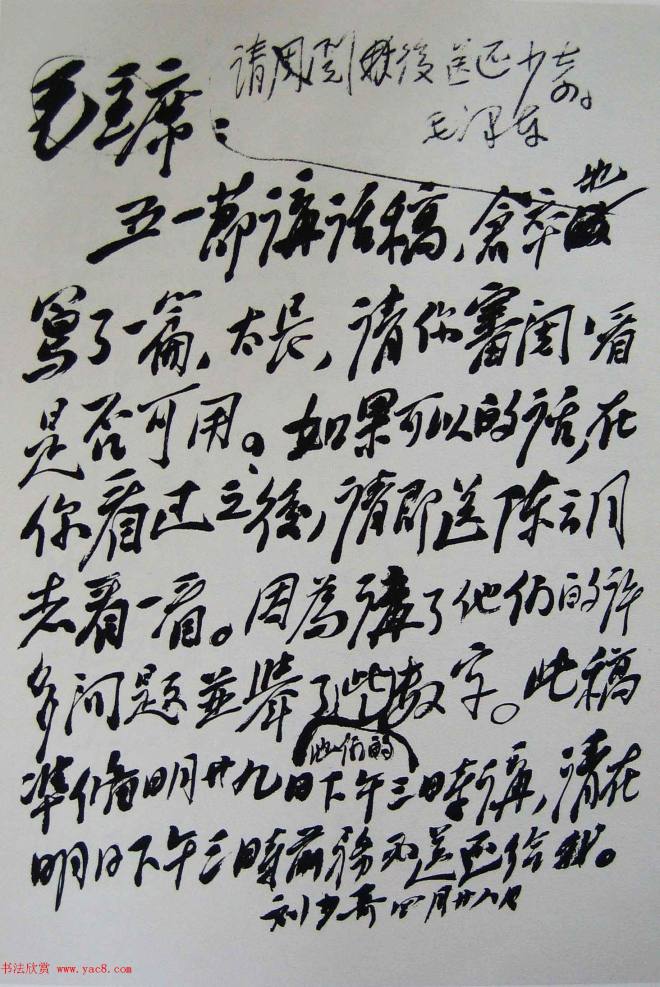 请周阅毕后送还少奇。
毛泽东
毛主席：
五一节講话稿，倉卒地
寫了一篇，太長，请你審閱，看
是否可用。如果可以的话，在
你看过之後，请即送陈云同
志看一看。因為講了他们的许
多问题並举了些数字。此稿
他们的
準備明廿九日下午三時講，请在
明日下午三時前務必送还给我。
刘少奇四月廿八日
书法欣赏 www.yac8.com